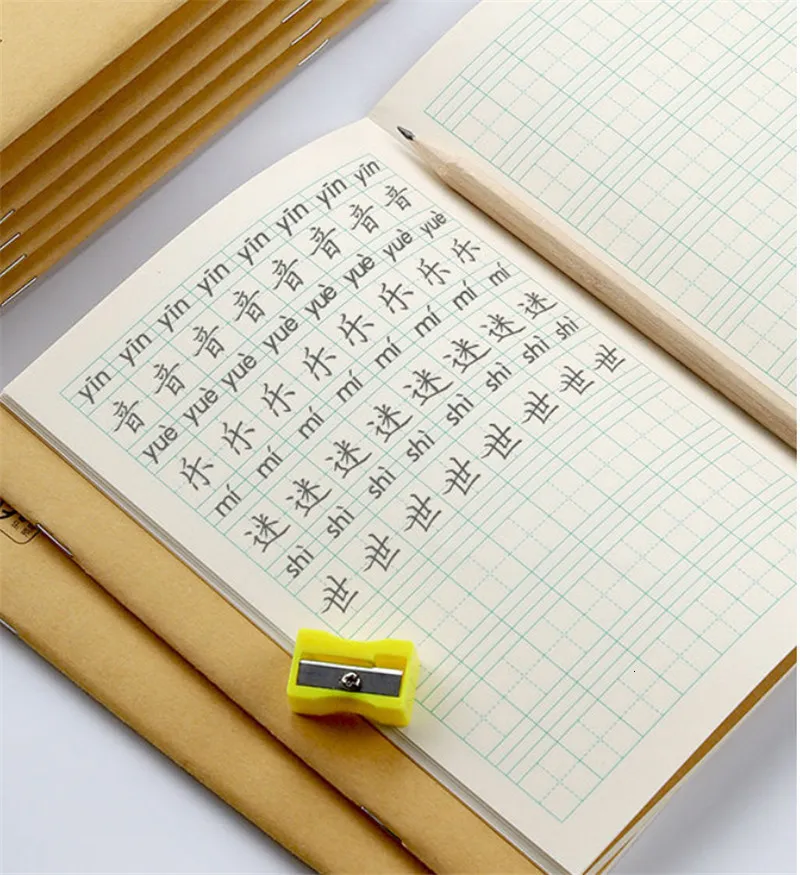 yīn yīn yīn yīn yīn yīn yīn yīn
音 音 音 音 音 音 音 音
yuè yuè yuè yuè yuè yuè yuè yuè
乐 乐 乐 乐 乐 乐 乐 乐
mí mí mí mí mí mí mí mí
迷 迷 迷 迷 迷 迷 迷 迷
shì shì shì shì shì shì shì shì
世 世 世 世 世 世 世 世